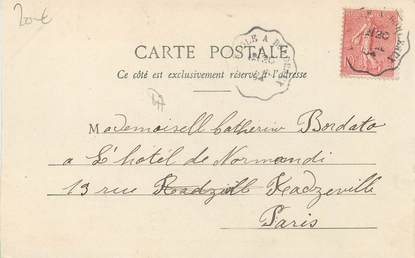 20€
CARTE POSTALE
Ce côté est exclusivement réservé à l'adresse
Mademoiselle Catherine Bordato
a L'hôtel de Normandi
13 rue Radzvill Kadzeville
Paris